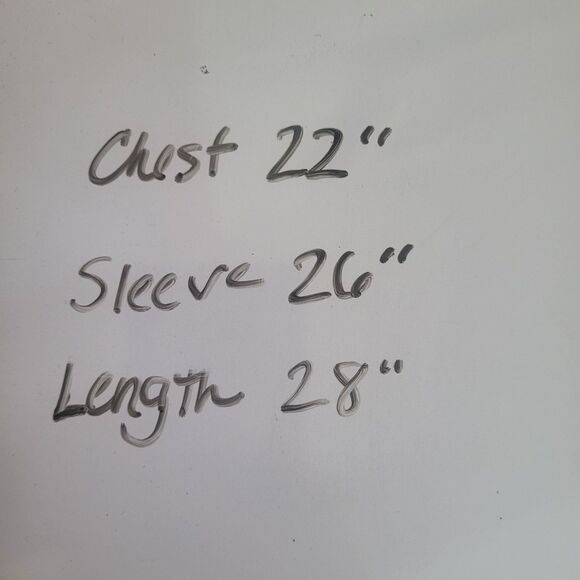 Chest 22"
Sleeve 26"
Length 28"